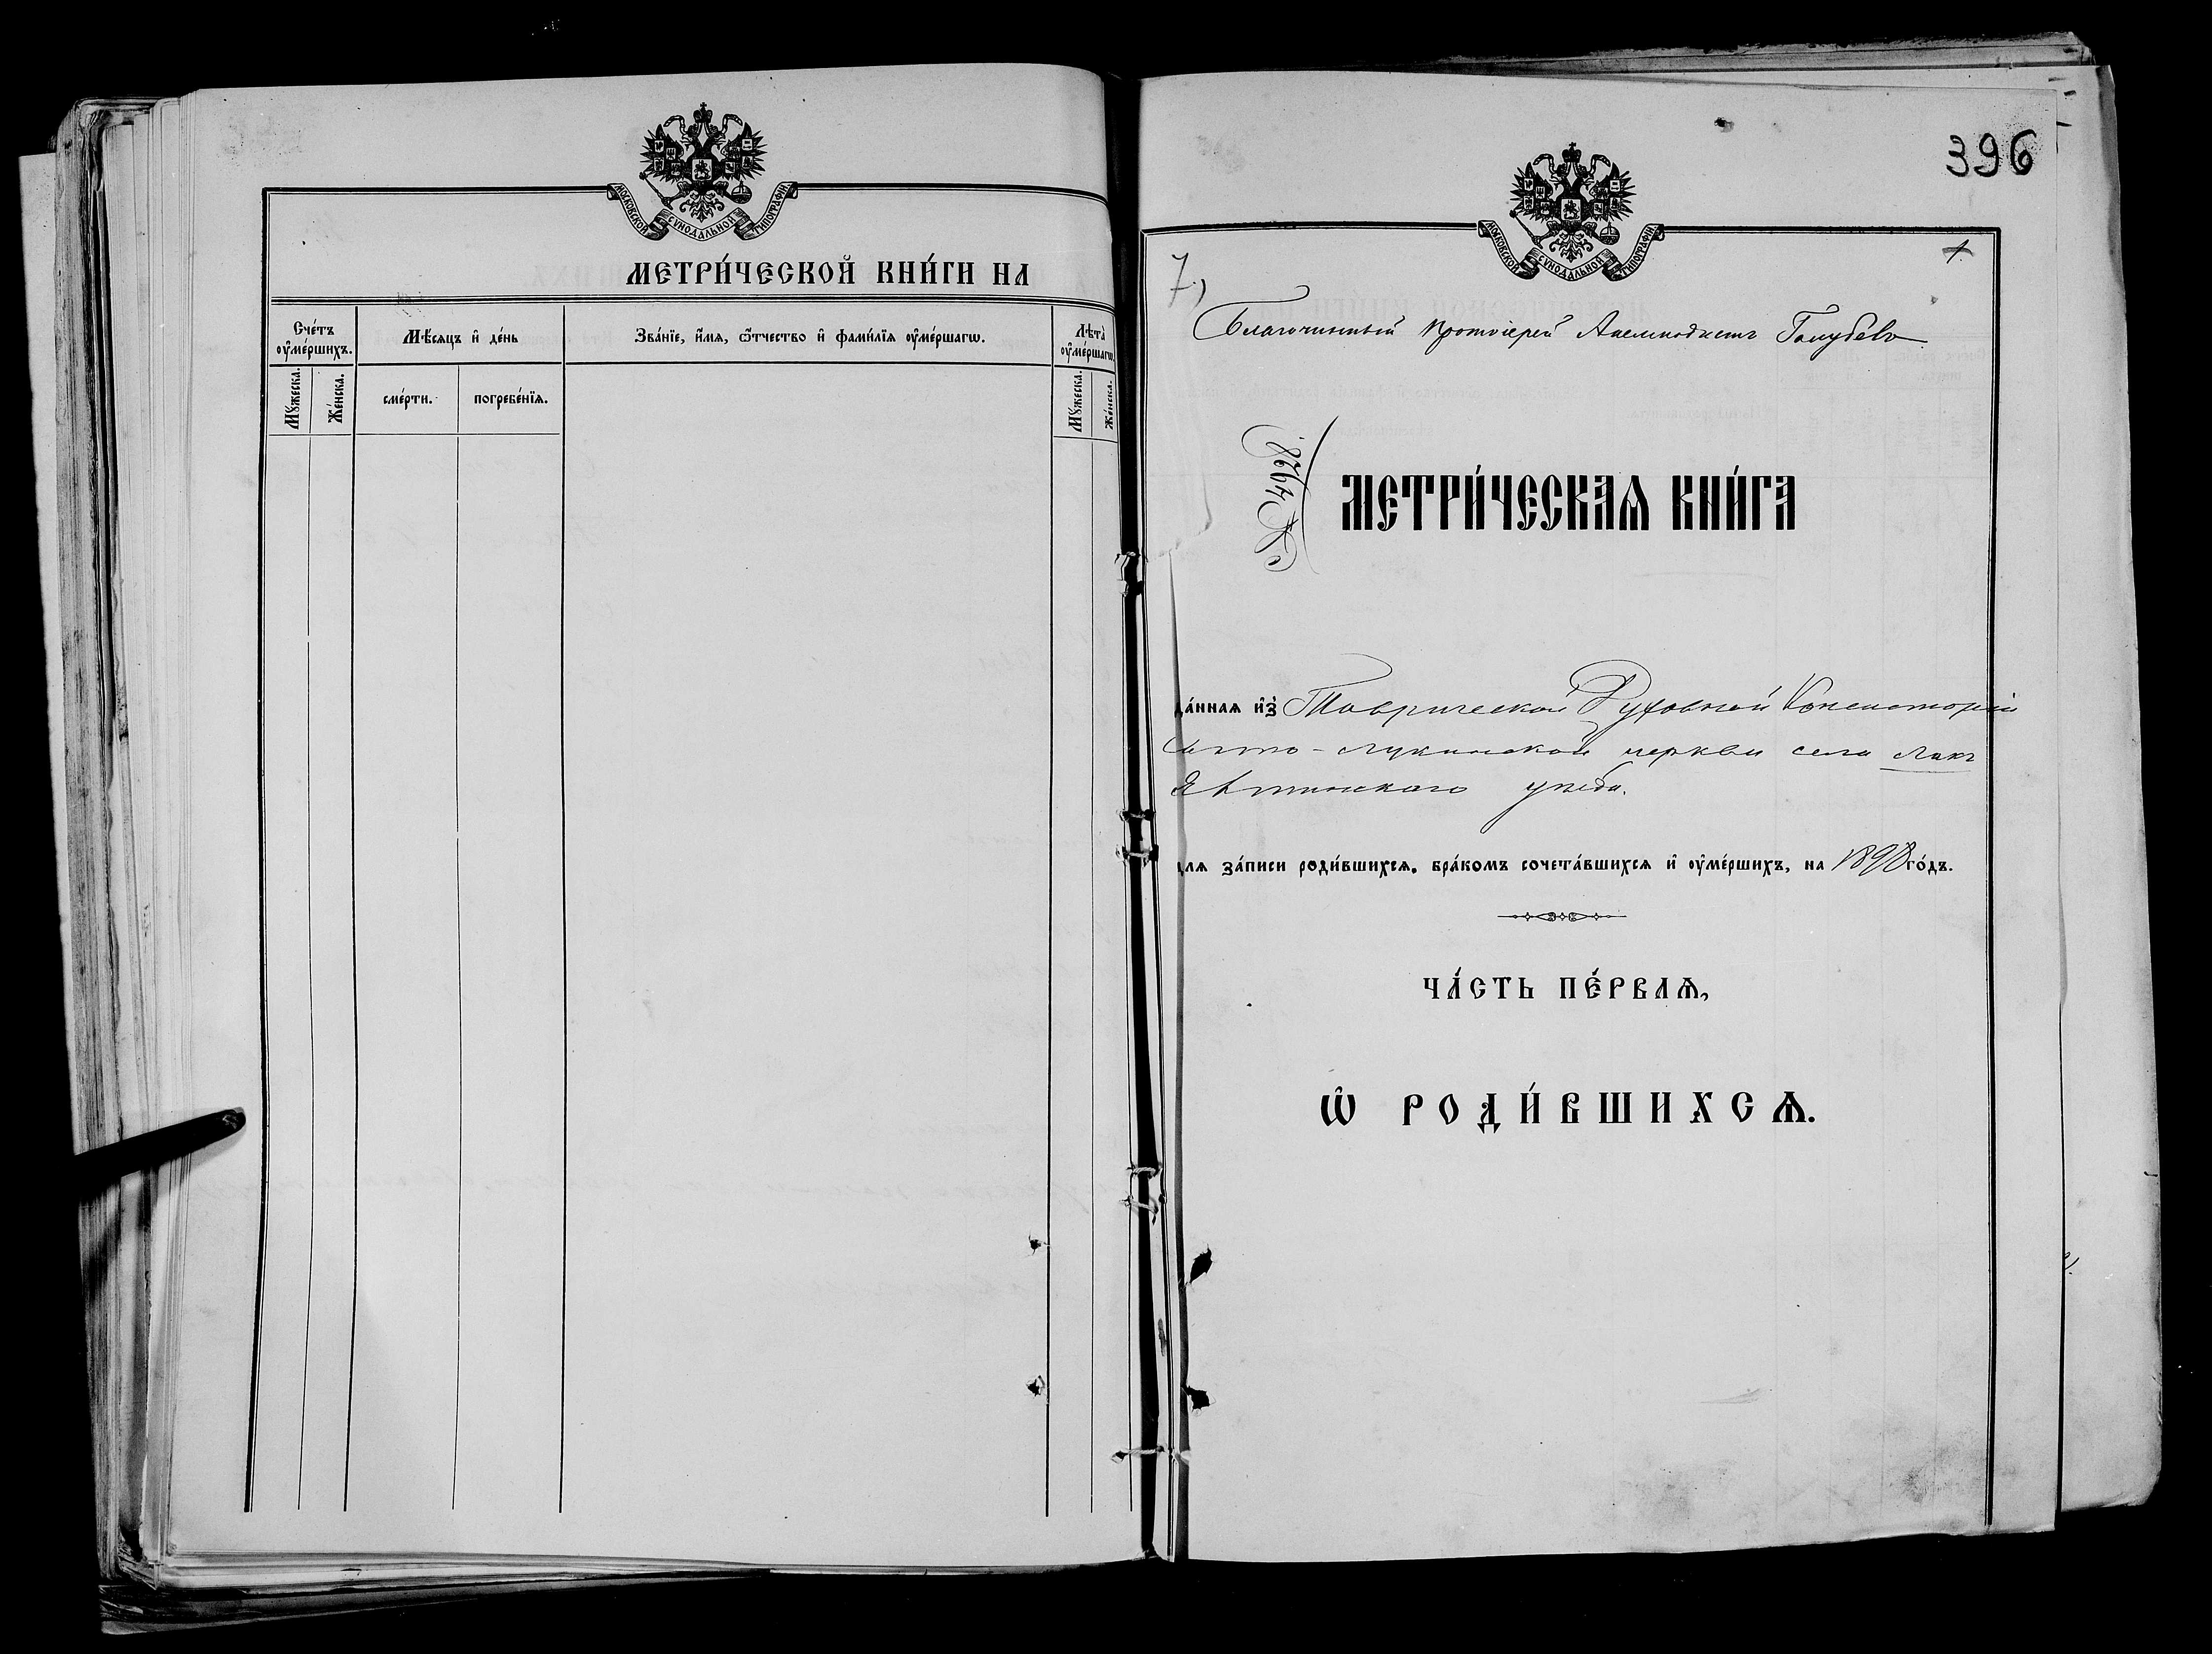 МОСКОВСКОЙ СѴНОДАЛЬНОЙ ТИПОГРАФІИ
МЕТРИ́ЧЕСКОЙ КНИ́ГИ НА
Сче́тъ ᲂу҆ме́ршихъ.
Мѣ́сяцъ и҆ де́нь
Зва́нїе, и҆́мѧ, ѻ҆́тчество и҆ фами́лїѧ ᲂу҆ме́ршагѡ.
Лѣ́та ᲂу҆ме́ршагѡ
Мꙋ́жеска.
Же́нска.
сме́рти.
погребе́нїѧ.
Мꙋ́жеска.
Же́нска.
396
МОСКОВСКОЙ СѴНОДАЛЬНОЙ ТИПОГРАФІИ
7)
Благочинный протоіерей Анемподистъ Голубевъ
№ 4928
МЕТРИ́ЧЕСКАѦ КНИ́ГА
да́ннаѧ и҆з̾ Таврической Духовной Консисторіи
Свято-Лукинской церкви села Лакъ
Ялтинского уѣзда.
для за́писи роди́вшихсѧ, бра́комъ сочета́вшихсѧ и҆ ᲂу҆ме́ршихъ, на 1898 го́дъ.
ЧА́СТЬ ПЕ́РВАѦ,
Ѡ҆ РОДИ́ВШИХСѦ.